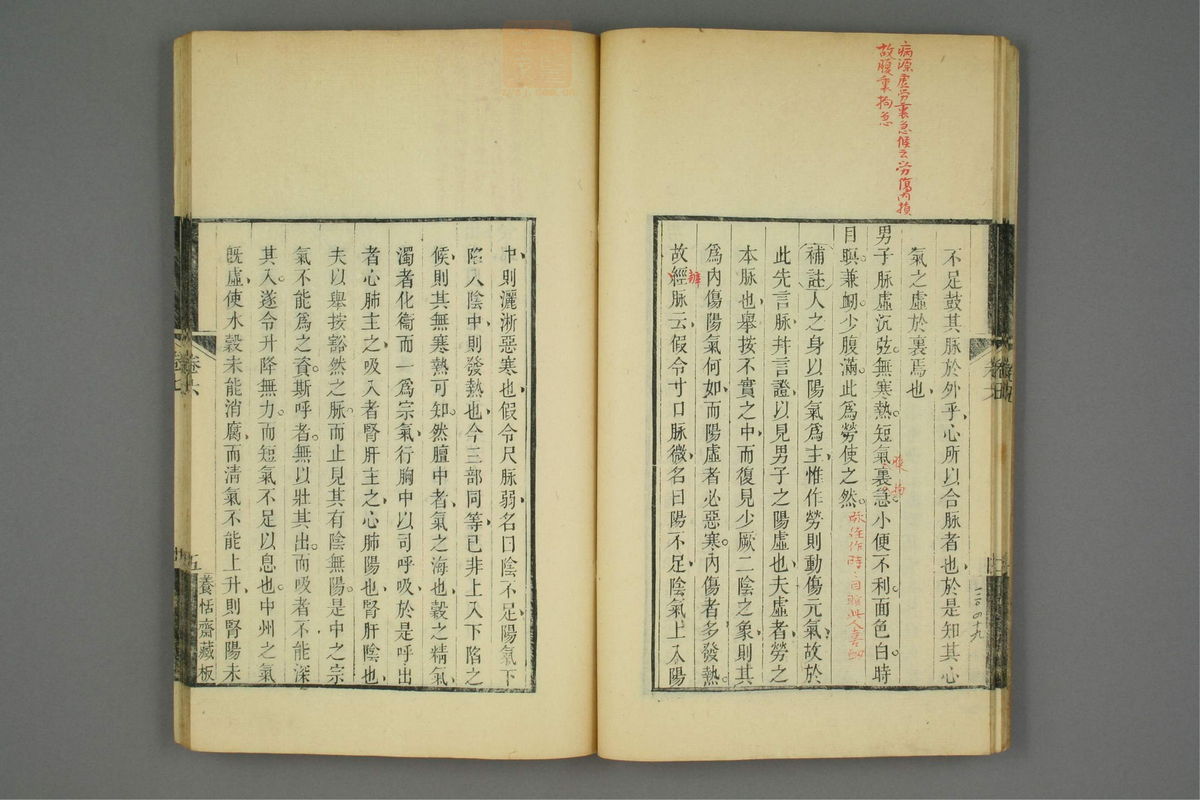 病源虛勞裏急候云勞傷內損
故腹裏拘急
不足鼓其脉於外乎心所以合脉者也於是知其心
氣之虛於裏焉也
男子脉虛沉弦無寒熱短氣裏急小便不利面色白時
腹拘
目瞑兼衂少腹滿此爲勞使之然
補註人之身以陽氣爲主惟作勞則動傷元氣故於
此先言脉并言證以見男子之陽虛也夫虛者勞之
本脉也舉按不實之中而復見少厥二陰之象則其
爲內傷陽氣何如而陽虛者必惡寒內傷者多發熱
辨
故經脉云假令寸口脉微名曰陽不足陰氣上入陽
中則灑淅惡寒也假令尺脉弱名曰陰不足陽氣下
陷入陰中則發熱也今三部同等已非上入下陷之
候則其無寒熱可知然膻中者氣之海也穀之精氣
濁者化衞而一爲宗氣行胸中以司呼吸於是呼出
者心肺主之吸入者腎肝主之心肺陽也腎肝陰也
夫以舉按豁然之脉而止見其有陰無陽是中之宗
氣不能爲之資斯呼者無以壯其出而吸者不能深
其入遂令升降無力而短氣不足以息也中州之氣
既虛使水穀未能消腐而清氣不能上升則腎陽未
卷六
五
養恬齋藏板